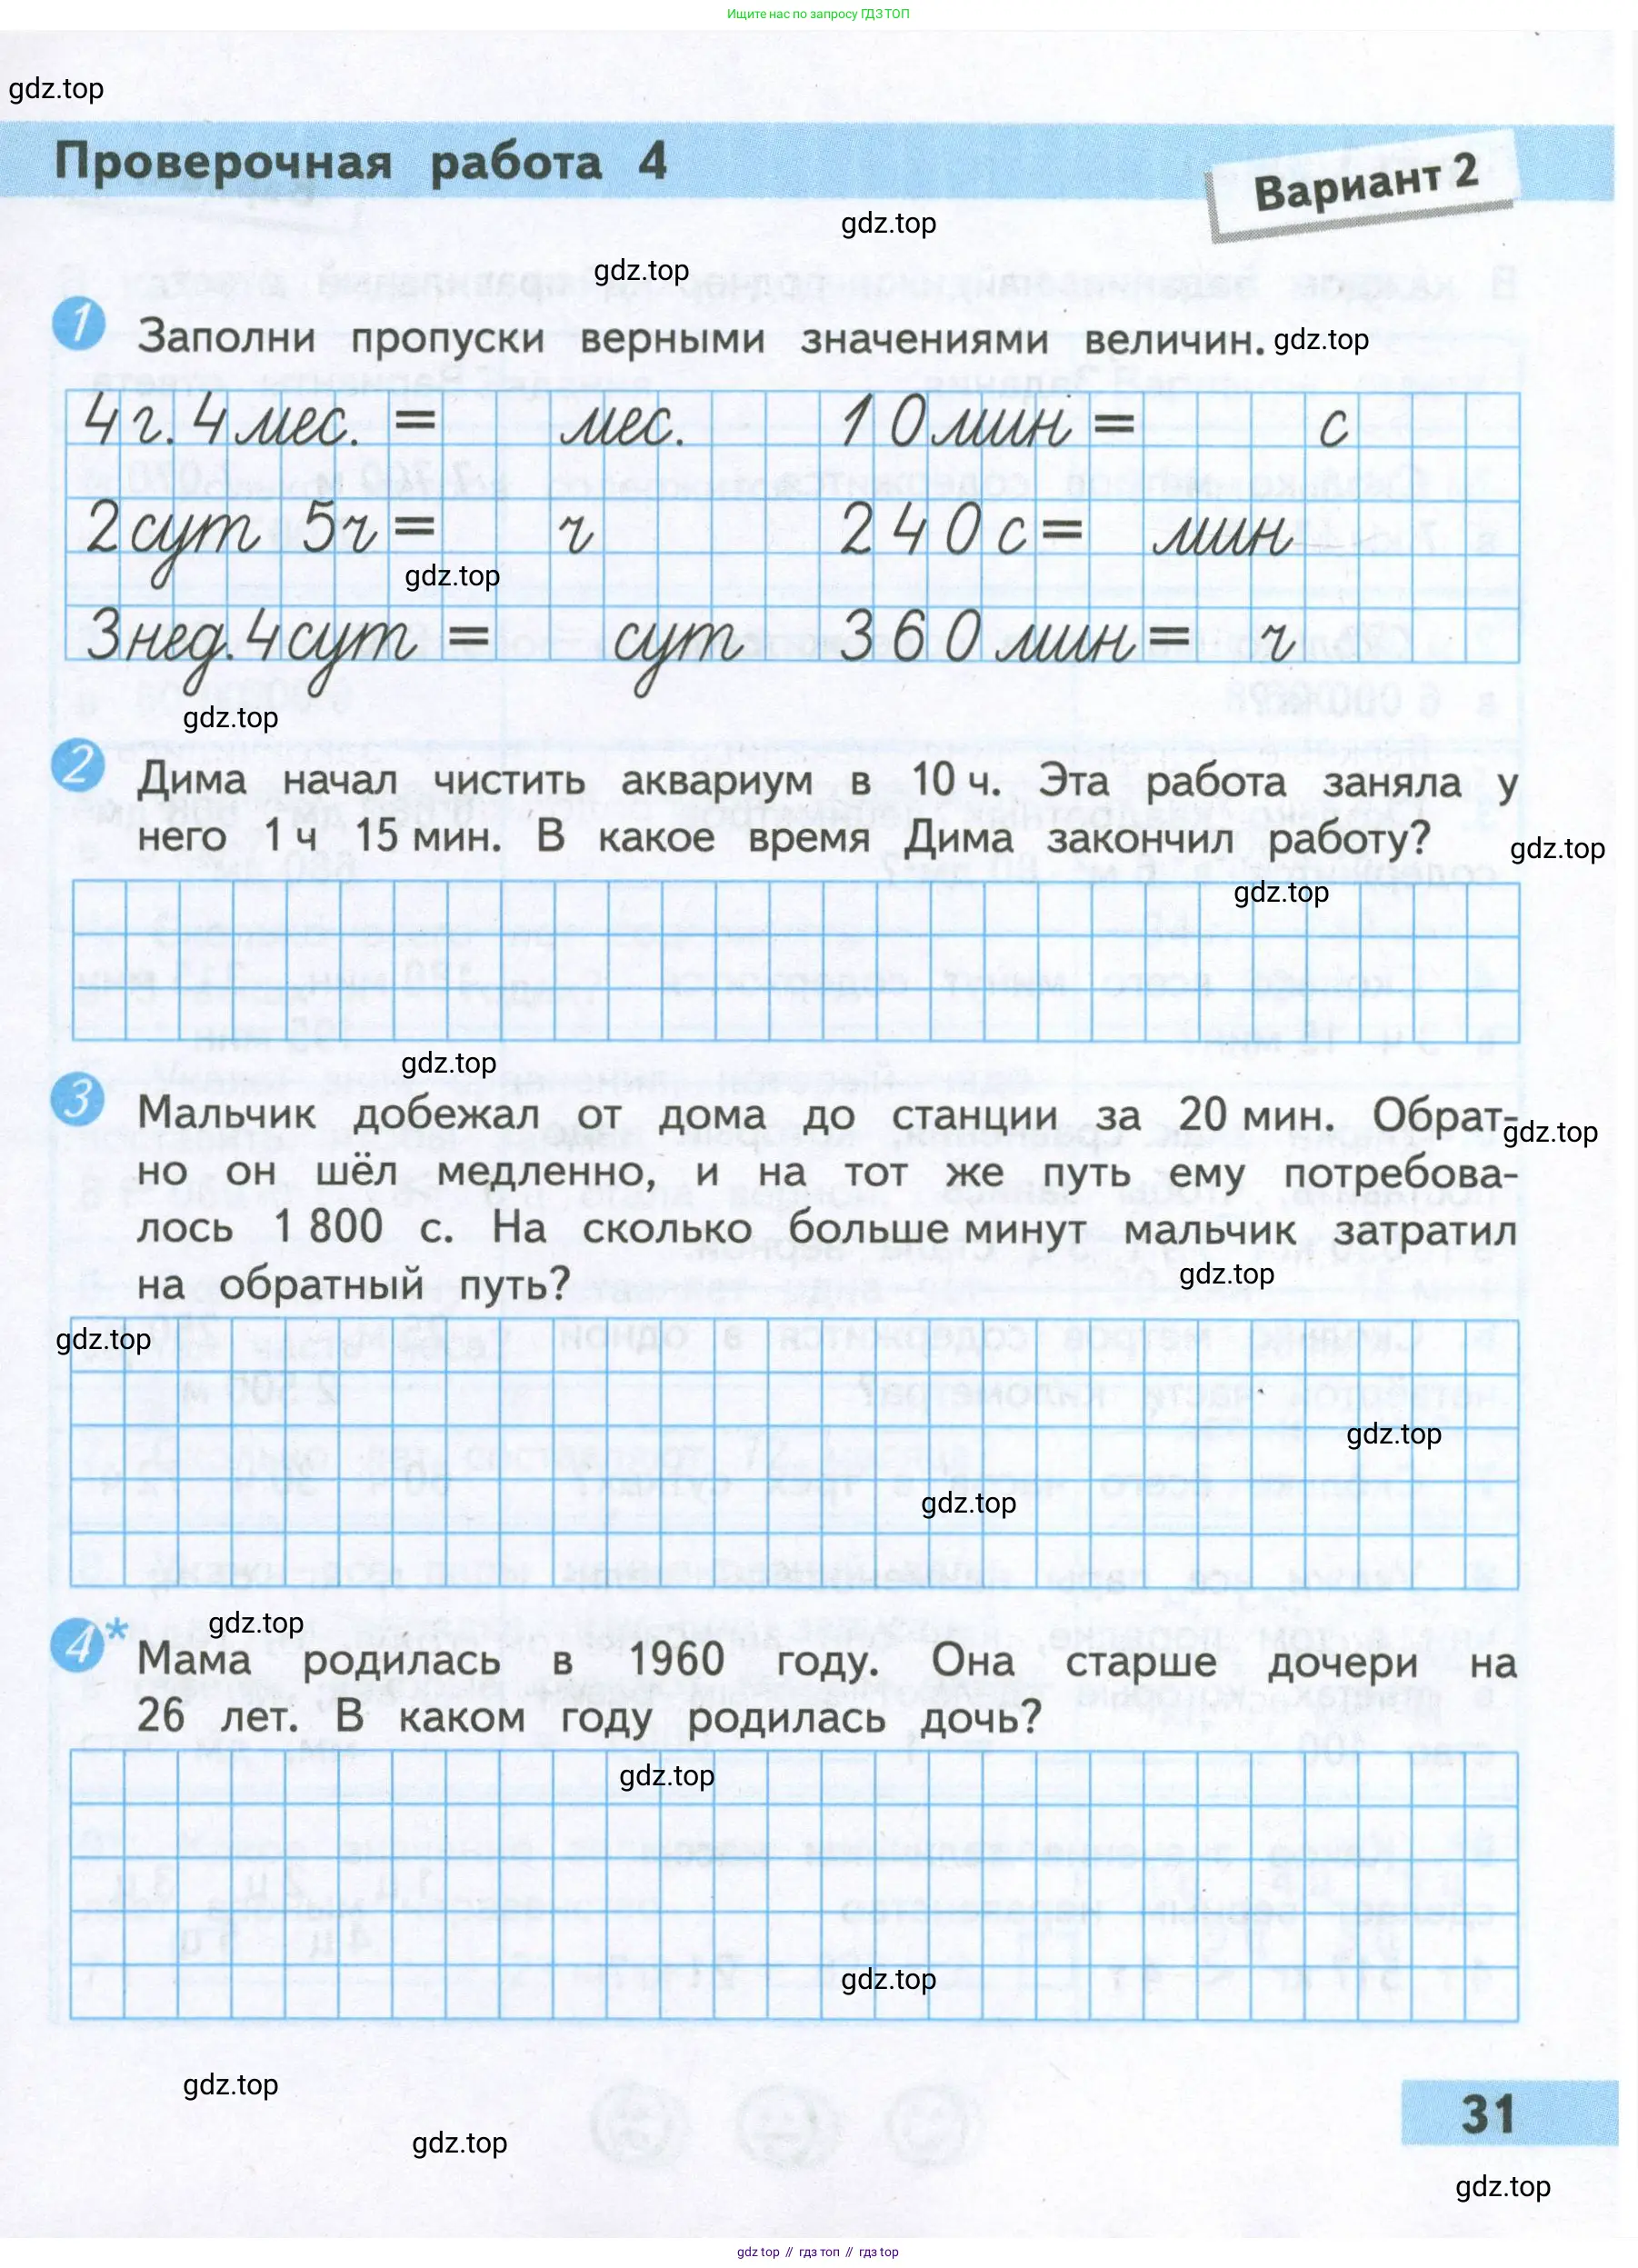 Ищите нас по запросу ГДЗ ТОП
gdz.top
Проверочная работа 4
Вариант 2
gdz.top
gdz.top
1 Заполни пропуски верными значениями величин. gdz.top
4 г. 4 мес. = мес. 10 мин = с
2 сут 5 ч = ч 240 с = мин
gdz.top
3 нед. 4 сут = сут 360 мин = ч
gdz.top
2 Дима начал чистить аквариум в 10 ч. Эта работа заняла у
него 1 ч 15 мин. В какое время Дима закончил работу?
gdz.top
gdz.top
gdz.top
3 Мальчик добежал от дома до станции за 20 мин. Обрат-
gdz.top
но он шёл медленно, и на тот же путь ему потребова-
лось 1 800 с. На сколько больше минут мальчик затратил
на обратный путь?
gdz.top
gdz.top
gdz.top
gdz.top
gdz.top
4* Мама родилась в 1960 году. Она старше дочери на
26 лет. В каком году родилась дочь?
gdz.top
gdz.top
gdz.top
31
gdz.top
gdz.top
gdz top // гдз топ // гдз top